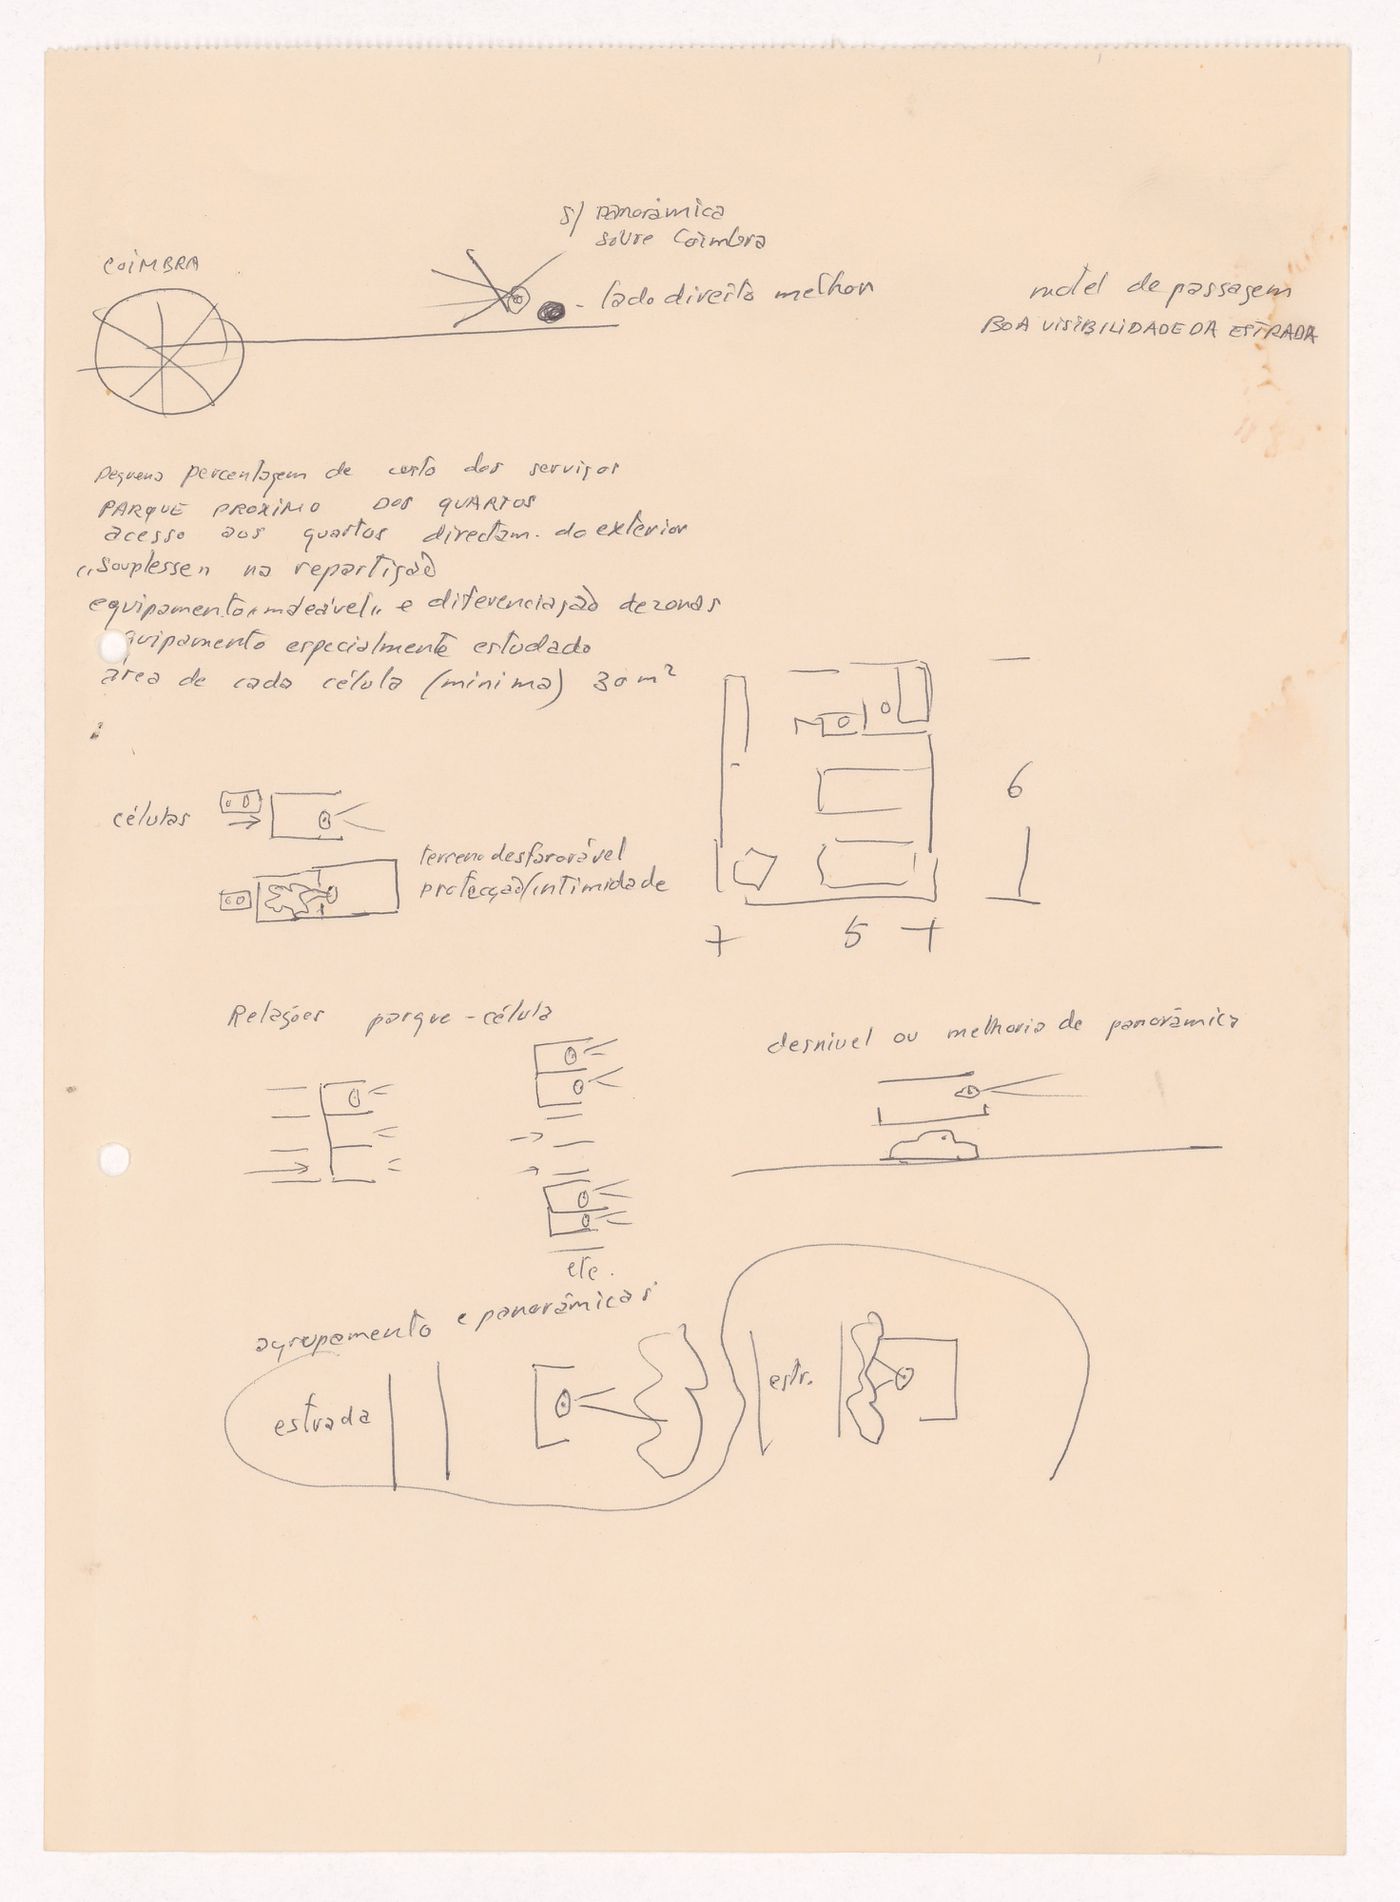 s/ panorâmica
sobre Coimbra
COIMBRA
- lado direito melhor
motel de passagem
BOA VISIBILIDADE DA ESTRADA
Pequena percentagem de custo dos serviços
PARQUE PROXIMO DOS QUARTOS
acesso aos quartos directam. do exterior
"Souplesse" na repartição
equipamento "maleável" e diferenciação de zonas
quipamento especialmente estudado
área de cada célula (mínima) 30 m²
células
terreno desfavorável
protecção/intimidade
6
5
Relações parque-célula
desnivel ou melhoria de panorâmica
etc.
agrupamento e panorâmicas
estrada
estr.